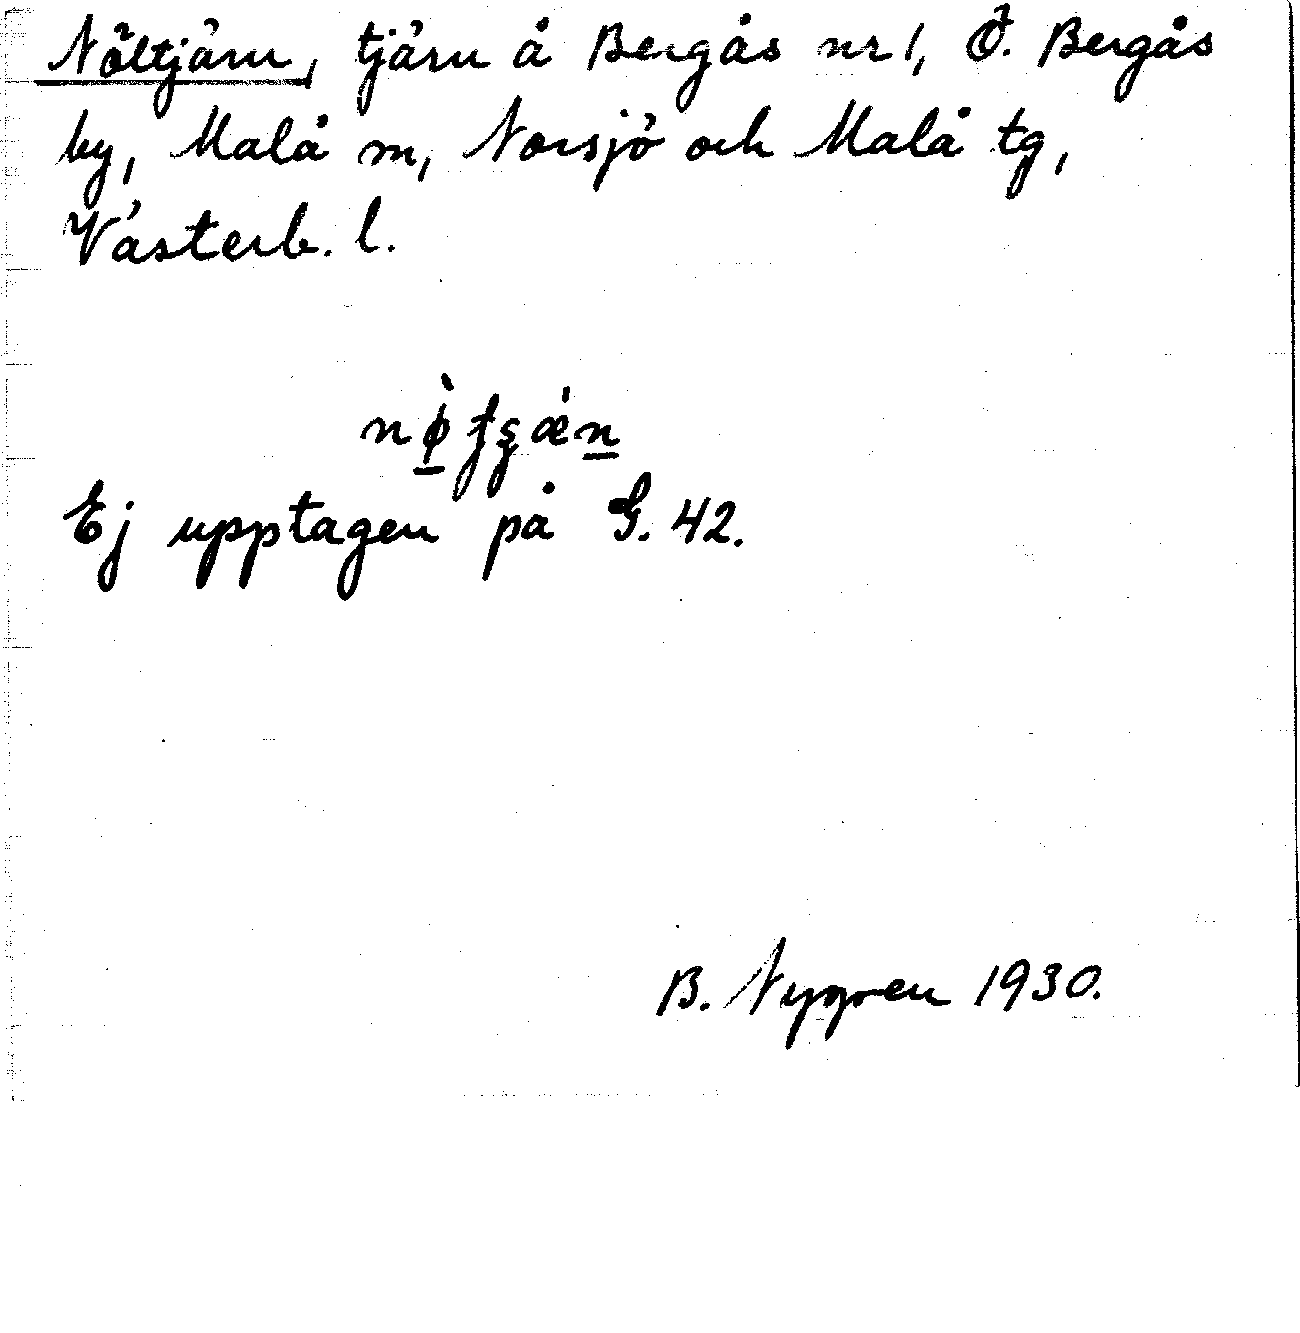 Nöltjärn, tjärn å Bergås nr 1, Ö. Bergås
by, Malå sn, Norsjö och Malå tg,
Västerb. l.
Ej upptagen på G. 42.
B. Nygren 1930.